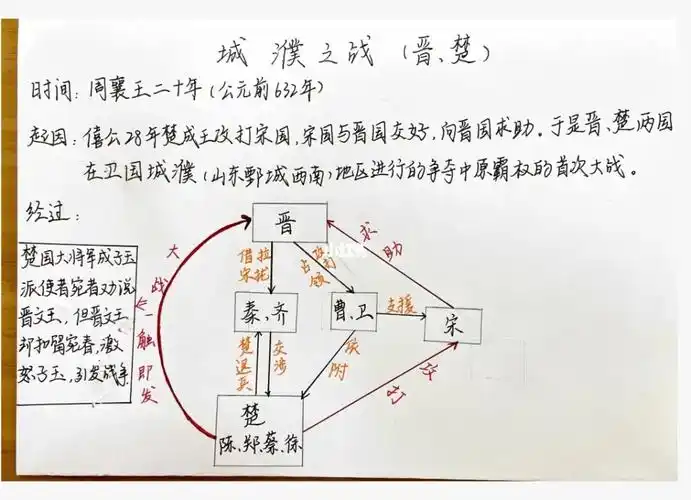 城濮之战（晋、楚）
时间：周襄王二十年（公元前632年）
起因：僖公28年楚成王攻打宋国，宋国与晋国交好，向晋国求助。于是晋、楚两国
在卫国城濮（山东鄄城西南）地区进行的争夺中原霸权的首次大战。
经过：
楚国大将军成子玉
派使者宛者劝说
晋文王，但晋文王
却扣留宛春，激
怒子玉，引发战争
大战一触即发
晋
借宋
拉拢
占领
求助
小红书
秦、齐
曹、卫
支援
宋
楚退兵
交涉
依附
攻打
楚
陈、郑、蔡、徐